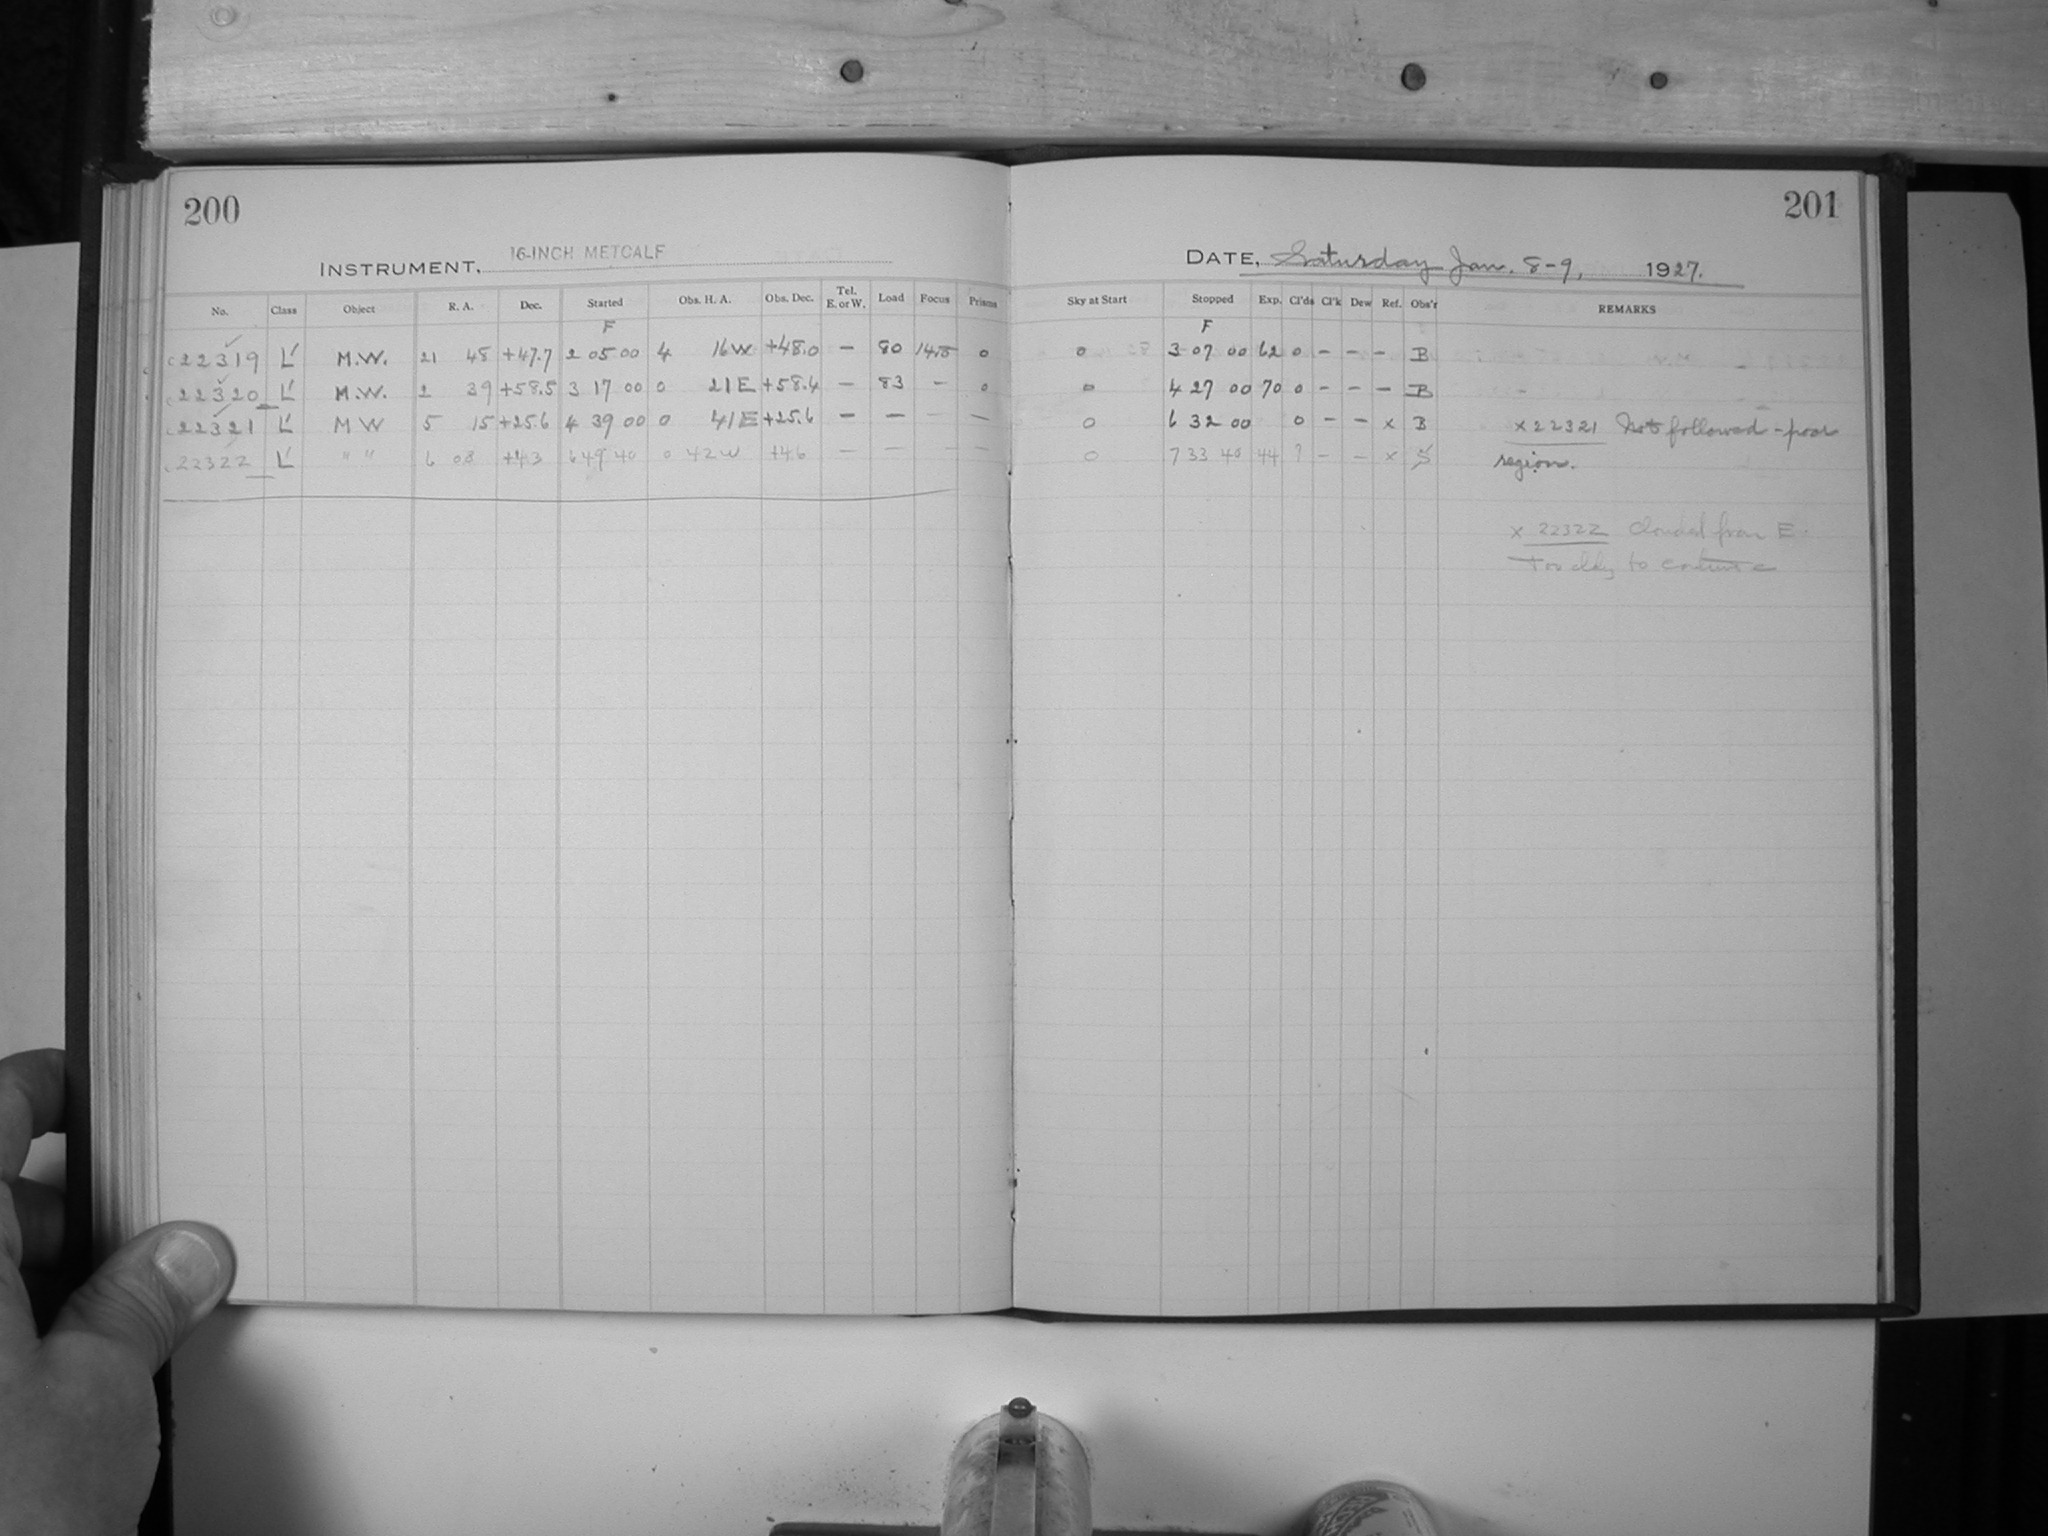 200
201
INSTRUMENT, 16-INCH METCALF
DATE, Saturday Jan. 8-9, 1927.
No. Class Object R. A. Dec. Started Obs. H. A. Obs. Dec. Tel. E. or W. Load Focus Prisms Sky at Start Stopped Exp. Cl'ds Cl'k Dew Ref. Obs'r REMARKS
F F
22319 L' M.W. 21 48 +47.7 2 05 00 4 16 W +48.0 – 80 14.5 0 0 3 07 00 62 0 – – – B
22320 L' M.W. 2 39 +58.5 3 17 00 0 21 E +58.4 – 83 – 0 0 4 27 00 70 0 – – – B
22321 L' M W 5 15 +25.6 4 39 00 0 41 E +25.6 – – – – 0 6 32 00 0 – – x B x 22321 Not followed - poor
22322 L' " " 6 08 +4.3 6 49 40 0 42 W +4.6 – – – – 0 7 33 40 44 ? – – x S region.
x 22322 Clouded from E.
Too cldy to continue